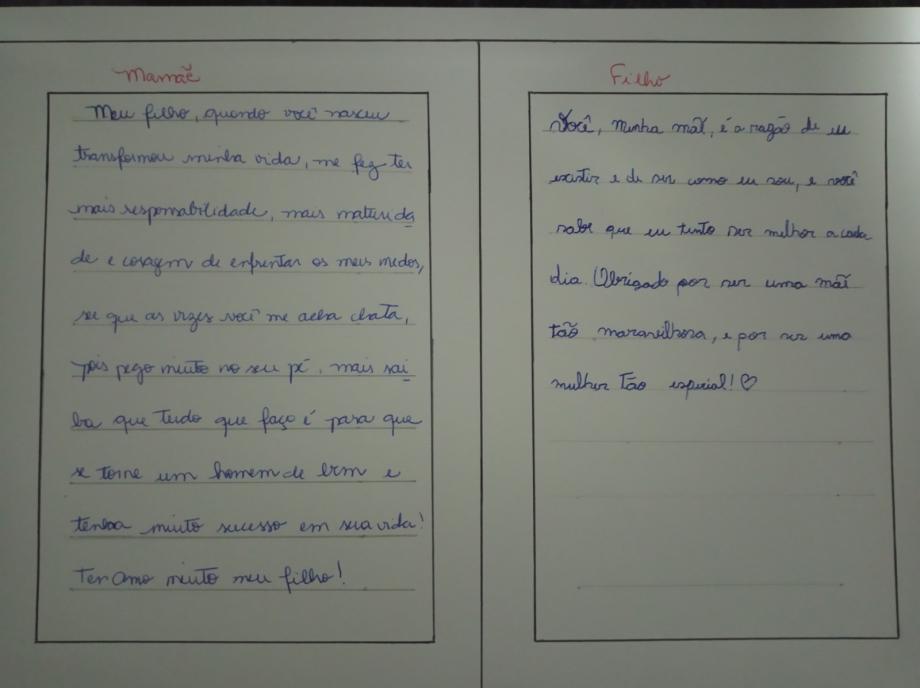 Mamãe
Meu filho, quando você nasceu
transformou minha vida, me fez ter
mais responsabilidade, mais maturida
de e coragem de enfrentar os meus medos,
sei que as vezes você me acha chata,
pois pego muito no seu pé, mais sai
ba que tudo que faço é para que
se torne um homem de bem e
tenha muito sucesso em sua vida!
Ter Amo muito meu filho!
Filho
Você, minha mãe, é a razão de eu
existir e de ser como eu sou, e você
sabe que eu tento ser melhor a cada
dia. Obrigado por ser uma mãe
tão maravilhosa, e por ser uma
mulher tão especial! ♡